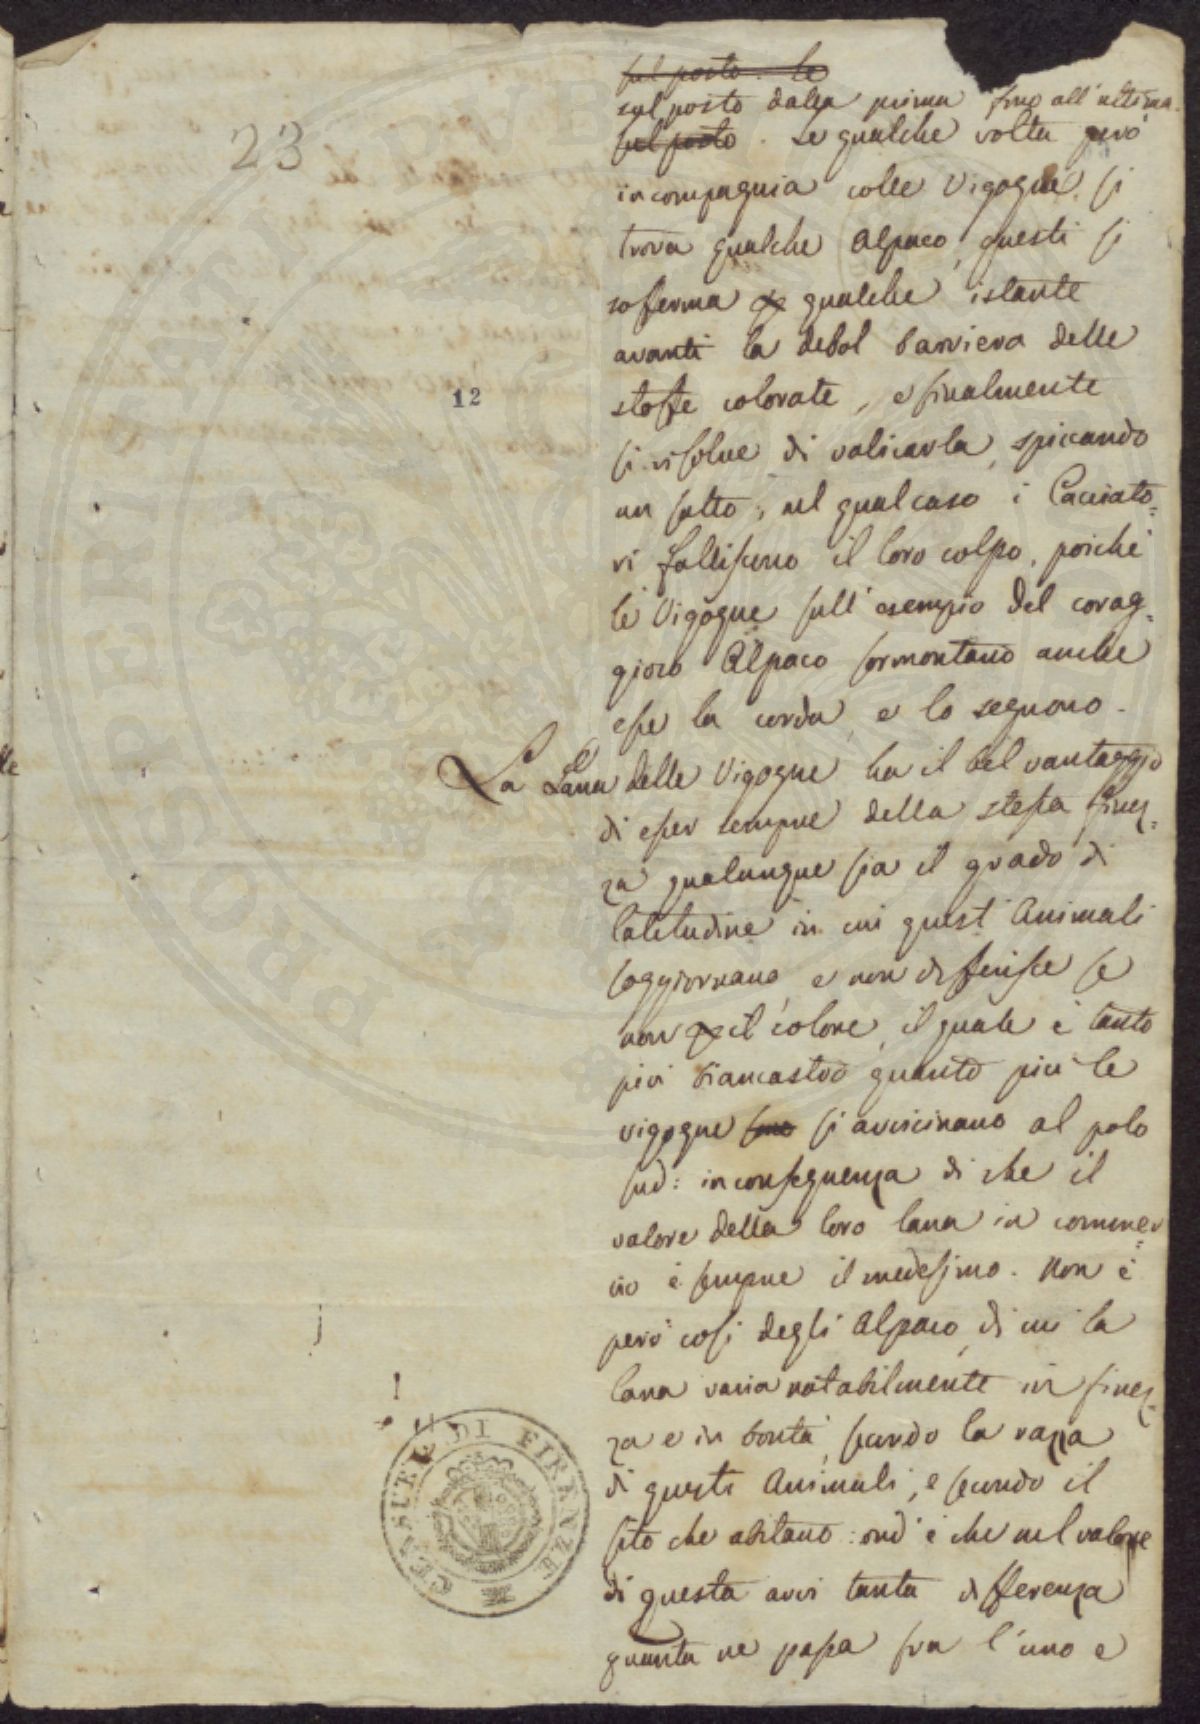 23
12
sul posto. le
sul posto dalla prima fino all'ultima.
sul posto. se qualche volta però
in compagnia colle Vigogne, si
trova qualche Alpaco, questi si
sofferma per qualche istante
avanti la debol barriera delle
stoffe colorate, e finalmente
si risolve di valicarla, spiccando
un salto; nel qual caso i Cacciato=
ri falliscono il loro colpo, poichè
le Vigogne sull'esempio del corag-
gioso Alpaco sormontano anche
esse la corda, e lo seguono.
La Lana delle Vigogne ha il bel vantaggio
di esser sempre della stessa finez=
za qualunque sia il grado di
latitudine in cui quest'Animali
soggiornano, e non differisce se
non per il colore, il quale è tanto
più biancastro quanto più le
vigogne sono si avvicinano al polo
sud: in conseguenza di che il
valore della loro lana in commer=
cio è sempre il medesimo. Non è
però così degli Alpaco, di cui la
lana varia notabilmente in finez-
za e in bontà, secondo la razza
di questi Animali, e secondo il
sito che abitano: ond'è che nel valore
di questa avvi tanta differenza
quanta ne passa fra l'uno e
CENSURE DI FIRENZE
PROSPERITATI